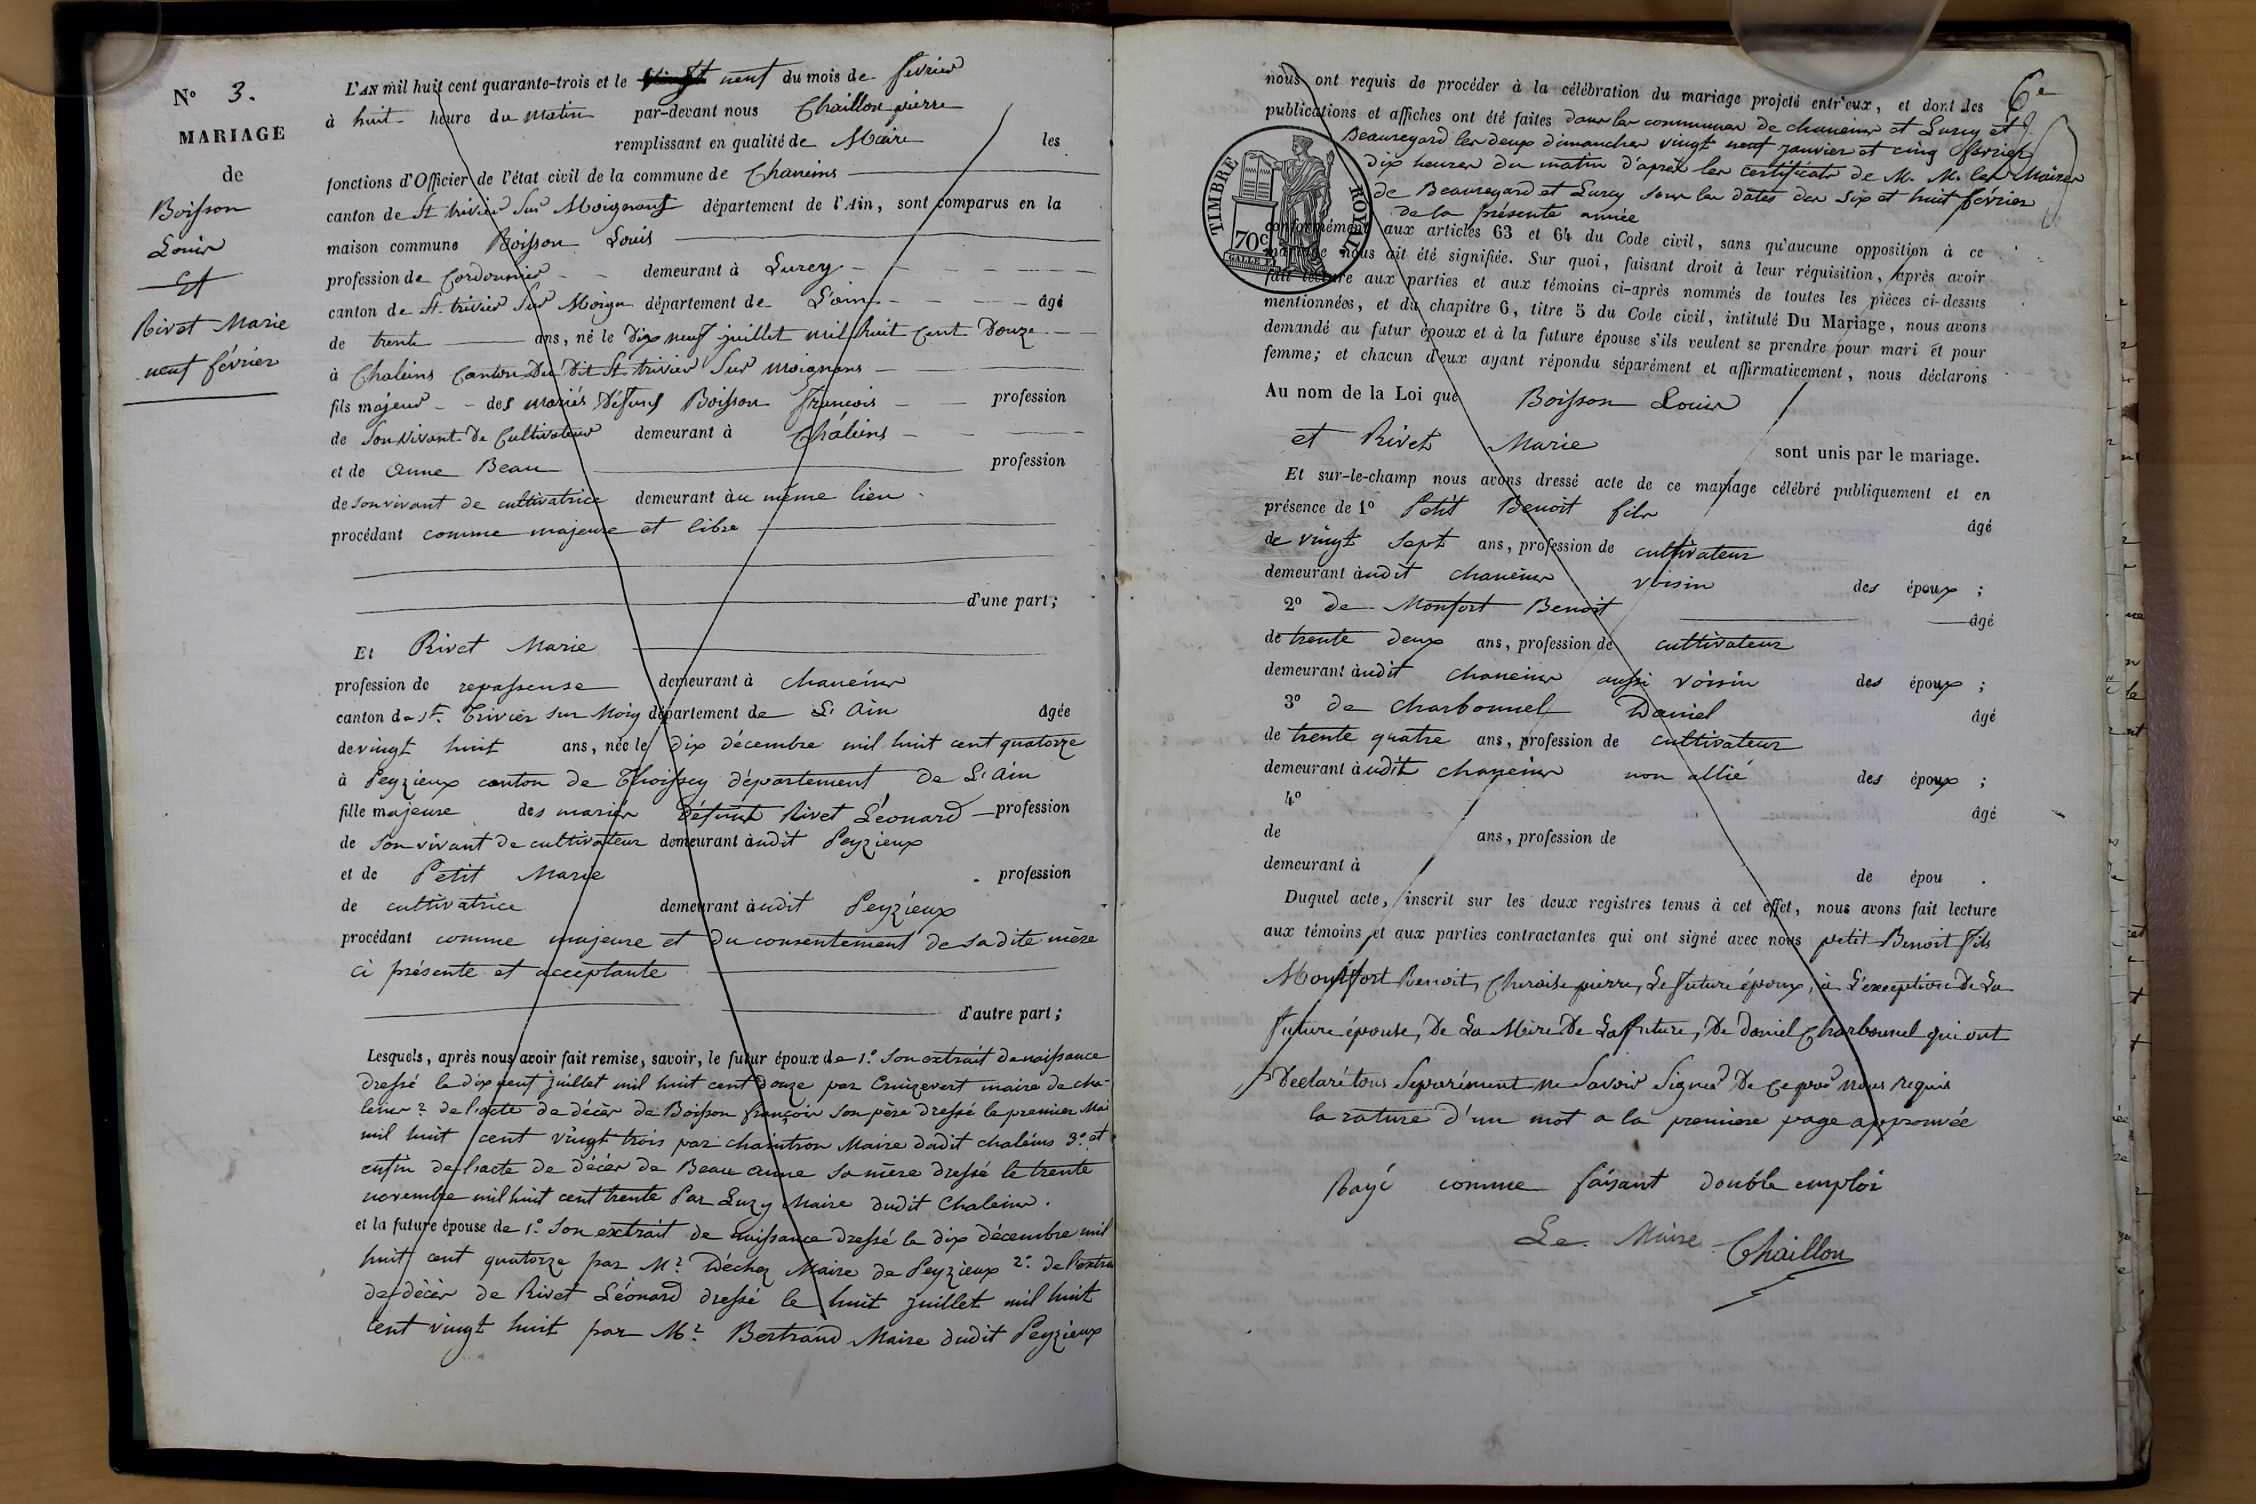 N° 3.
MARIAGE
de
Boisson
Louis
Et
Rivet Marie
neuf février
L'AN mil huit cent quarante-trois et le vingt neuf du mois de fevrier
à huit heure du matin par-devant nous Chaillon pierre
remplissant en qualité de Maire les
fonctions d'Officier de l'état civil de la commune de Chaneins
canton de St trivier Sur Moignans département de l'Ain, sont comparus en la
maison commune Boisson Louis
profession de Cordonnier demeurant à Lurcy
canton de St. trivier Sur Moign département de L'ain âgé
de trente ans, né le Dix neuf juillet mil huit Cent Douze
à Chaleins Canton Du Dit St trivier Sur moignans
fils majeur des mariés Défunts Boisson françois profession
de Son Vivant De Cultivateur demeurant à Chaleins
et de Anne Beau profession
de son vivant de cultivatrice demeurant àu même lieu
procédant comme majeure et libre
d'une part;
Et Rivet Marie
profession de repasseuse demeurant à chaneins
canton de St. Trivier sur Moig département de L'Ain âgée
de vingt huit ans, née le dix décembre mil huit cent quatorze
à Peyzieux canton de Thoissey département de L'Ain
fille majeure des mariés Défunt Rivet Léonard profession
de son vivant de cultivateur demeurant àudit Peyzieux
et de Petit Marie profession
de cultivatrice demeurant àudit Peyzieux
procédant comme majeure et du consentement de sa dite mère
ci présente et acceptante
d'autre part;
Lesquels, après nous avoir fait remise, savoir, le futur époux de 1.° Son extrait de naissance
dressé le dix neuf juillet mil huit cent douze par Cruizevert maire de cha-
leins 2 de l'acte de décès de Boisson françois son père dressé le premier Mai
mil huit cent vingt trois par chaintron Maire dudit chaleins 3.° et
enfin de l'acte de décès de Beau anne sa mère dressé le trente
novembre mil huit cent trente Par Luzy Maire dudit Chaleins.
et la future épouse de 1.° Son extrait de naissance dressé le dix décembre mil
huit cent quatorze par Mr Déchez Maire de Peyzieux 2.° de l'extra
de décès de Rivet Léonard dressé le huit juillet mil huit
cent vingt huit par Mr Bertrand Maire dudit Peyzieux
6e
nous ont requis de procéder à la célébration du mariage projeté entr'eux, et dont les
publications et affiches ont été faites dans les communes de chaneins et Lurcy et
Beauregard les deux dimanches vingt neuf janvier et cinq février
dix heures du matin d'après les certificats de M. M. les Maires
de Beauregard et Lurcy sous les dates des six et huit février
de la présente année
TIMBRE ROYAL
70c
conformément aux articles 63 et 64 du Code civil, sans qu'aucune opposition à ce
mariage nous ait été signifiée. Sur quoi, faisant droit à leur réquisition, après avoir
fait lecture aux parties et aux témoins ci-après nommés de toutes les pièces ci-dessus
mentionnées, et du chapitre 6, titre 5 du Code civil, intitulé Du Mariage, nous avons
demandé au futur époux et à la future épouse s'ils veulent se prendre pour mari et pour
femme; et chacun d'eux ayant répondu séparément et affirmativement, nous déclarons
Au nom de la Loi que Boisson Louis
et Rivet Marie sont unis par le mariage.
Et sur-le-champ nous avons dressé acte de ce mariage célébré publiquement et en
présence de 1° Petit Benoit fils âgé
de vingt sept ans, profession de cultivateur
demeurant àudit chaneins voisin des époux ;
2° de Monfort Benoit âgé
de trente deux ans, profession de cultivateur
demeurant àudit chaneins aussi voisin des époux ;
3° de charbonnel Daniel âgé
de trente quatre ans, profession de cultivateur
demeurant àudit chaneins non allié des époux ;
4° âgé
de ans, profession de
demeurant à de épou .
Duquel acte, inscrit sur les deux registres tenus à cet effet, nous avons fait lecture
aux témoins et aux parties contractantes qui ont signé avec nous petit Benoit fils
Montfort Benoit, pierre, Le future époux, à L'exception De La
future épouse, De La Mère De La future, De Daniel Charbonnel qui ont
Déclaré tous Séparément ne Savoir Signer De ce par nous requis
la rature d'un mot a la premiere page approuvée
Rayé comme faisant double emploi
Le Maire Chaillon